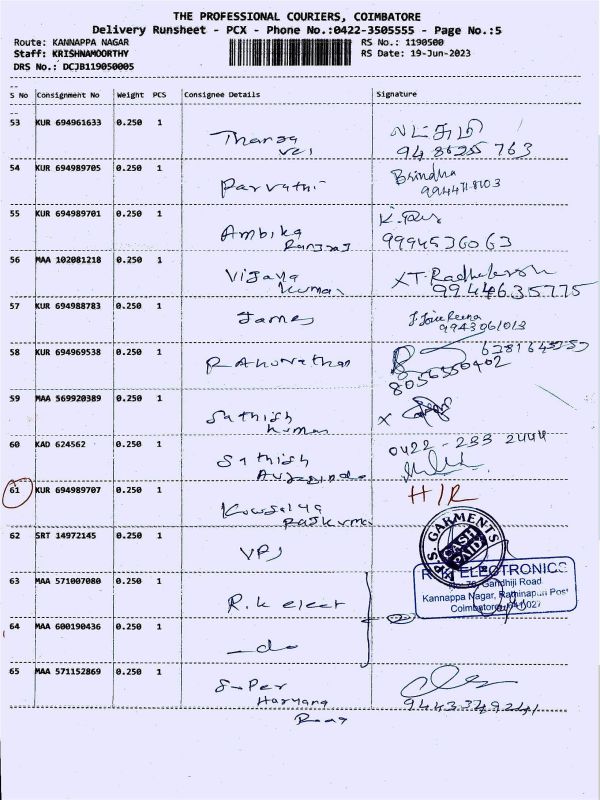 THE PROFESSIONAL COURIERS, COIMBATORE
Delivery Runsheet - PCX - Phone No.:0422-3505555 - Page No.:5
Route: KANNAPPA NAGAR RS No.: 1190500
Staff: KRISHNAMOORTHY RS Date: 19-Jun-2023
DRS No.: DCJB119050005
S No Consignment No Weight PCS Consignee Details Signature
53 KUR 694961633 0.250 1 Thanga
54 KUR 694989705 0.250 1 Parvathi Brindha
55 KUR 694989701 0.250 1 Ambika
9994536063
56 MAA 102081218 0.250 1 Vijaya
Kumar 9944635775
57 KUR 694988783 0.250 1 James
9943061013
58 KUR 694969538 0.250 1
8056550402
59 MAA 569920389 0.250 1 Sathish
Kumar
60 KAD 624562 0.250 1 Sathish 0422-233 2444
61 KUR 694989707 0.250 1 Kowsalya H/R
62 SRT 14972145 0.250 1 VPS
S. GARMENTS
CASH PAID
ELECTRONICS
63 MAA 571007080 0.250 1 R.K elect
Gandhiji Road
Kannappa Nagar, Rathinapuri Post
64 MAA 600190436 0.250 1 -do
65 MAA 571152869 0.250 1 Super
Haryana